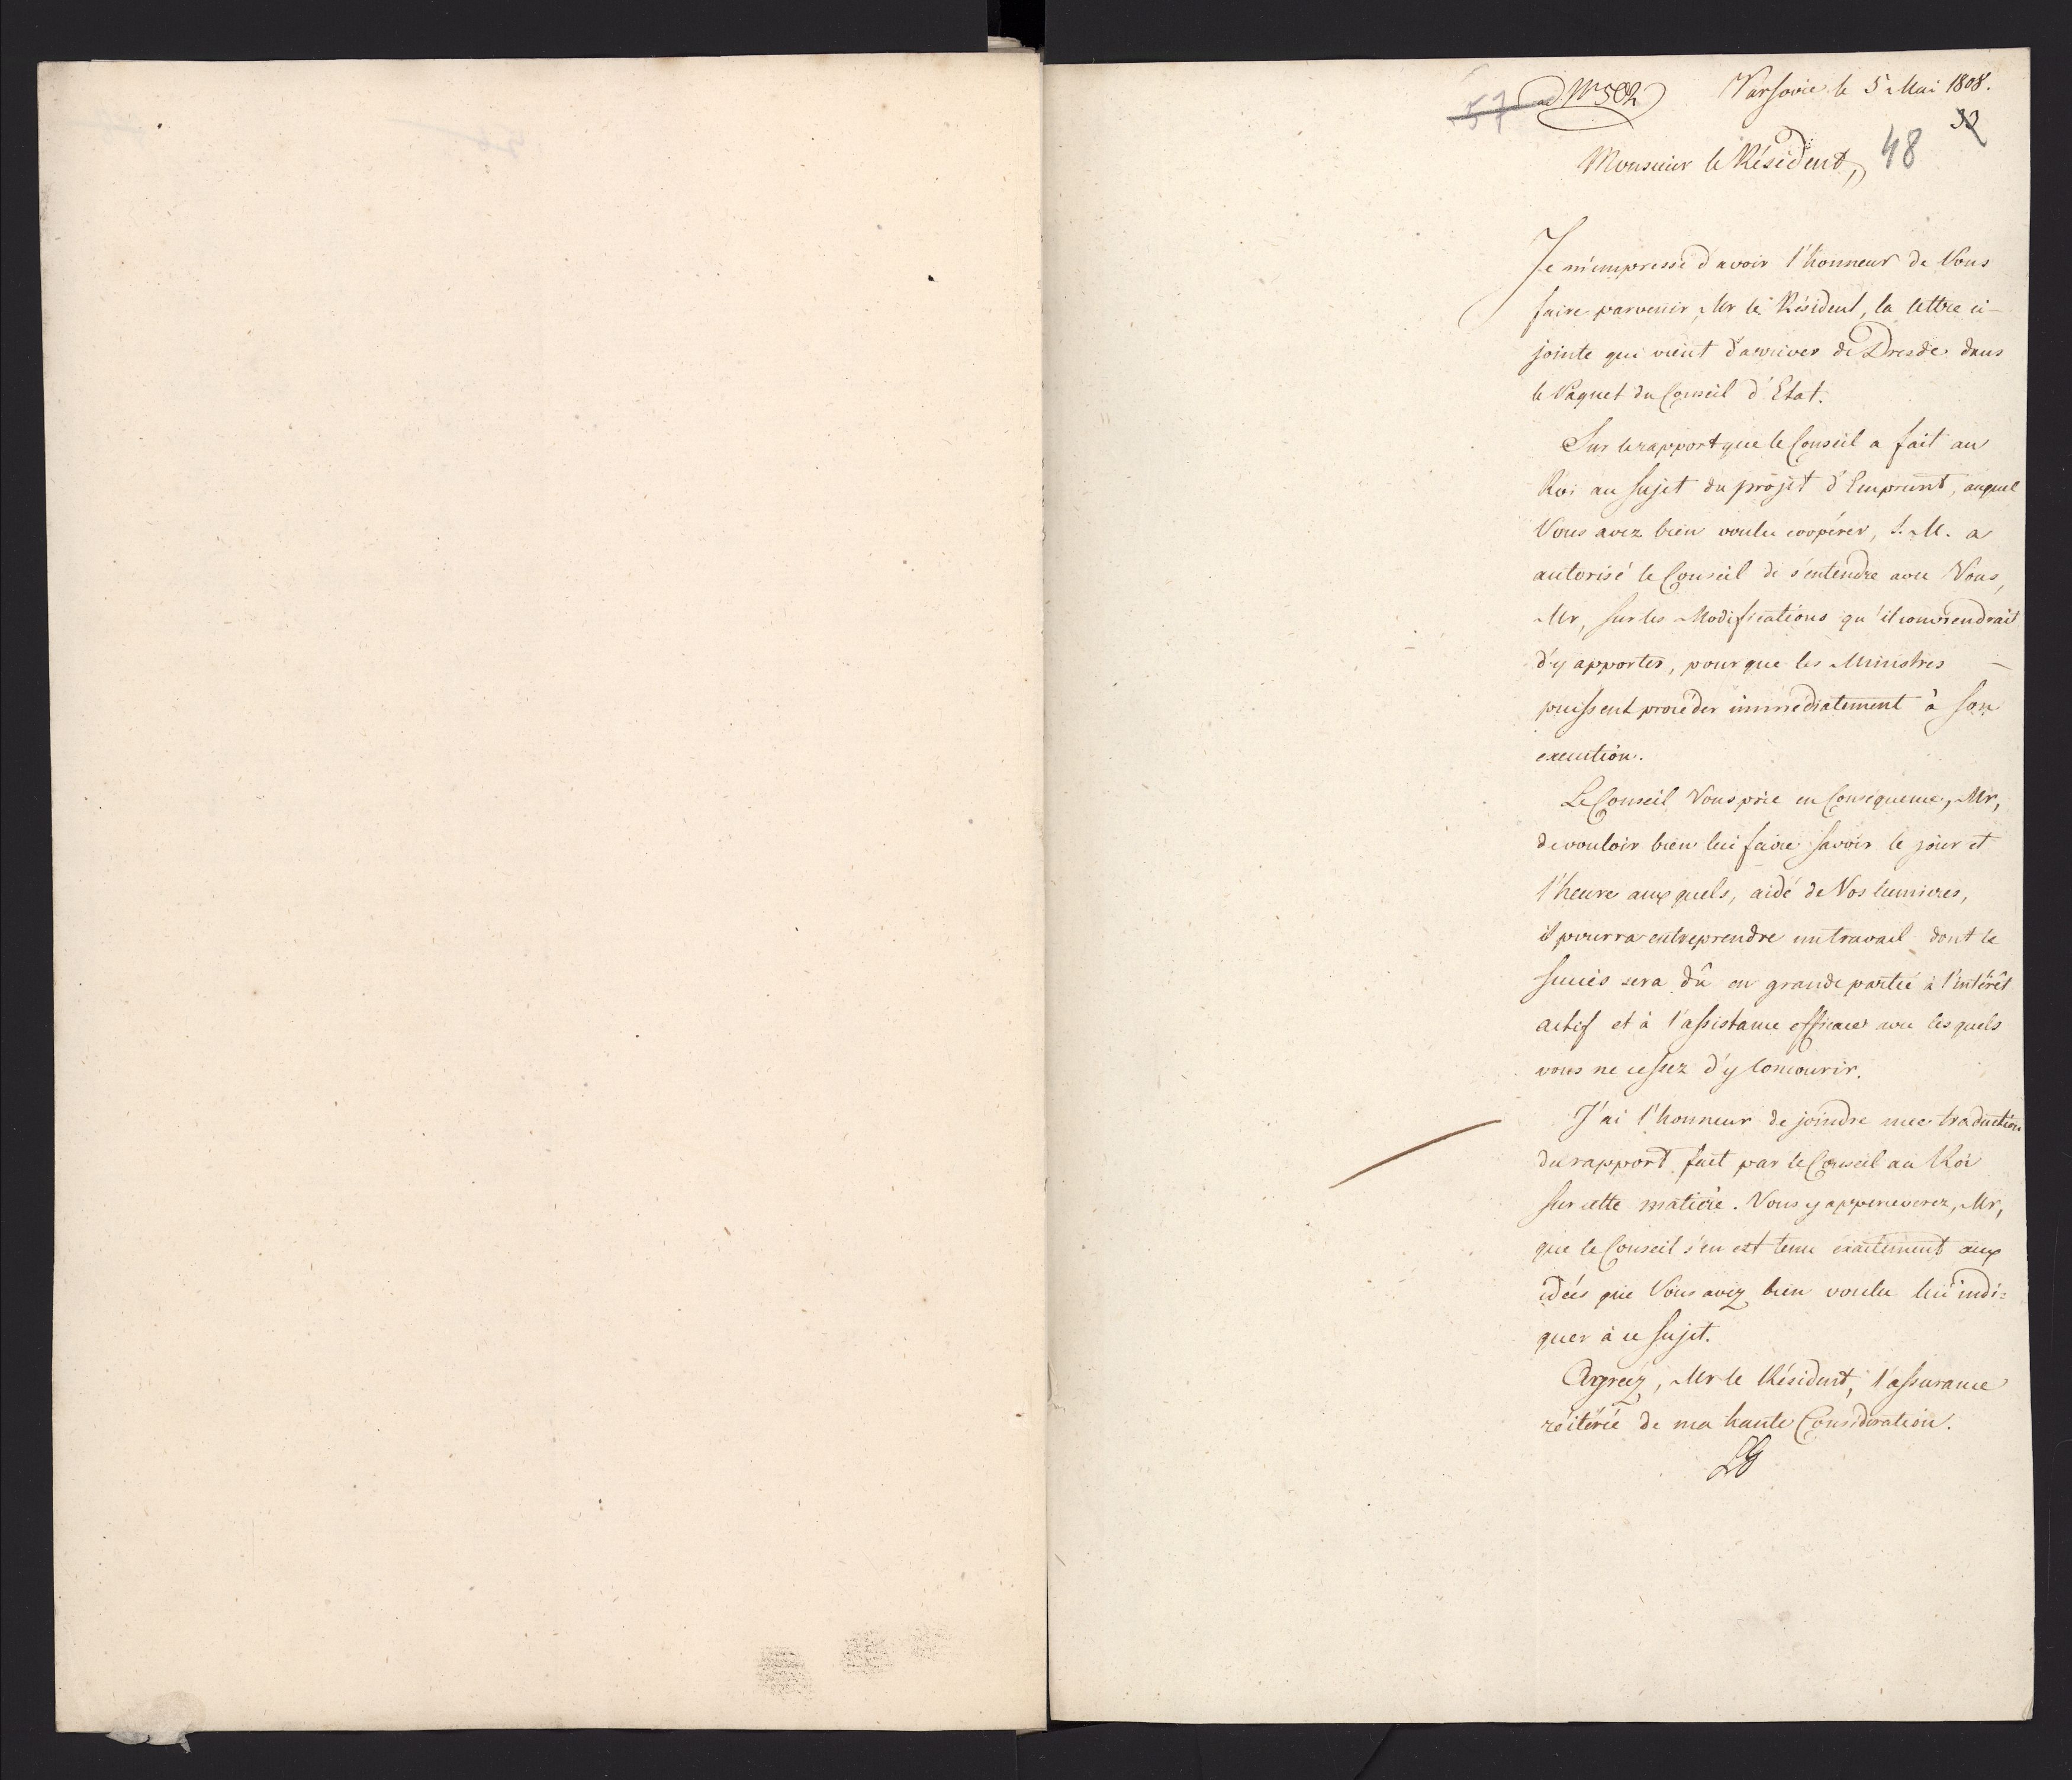 57 ad Nr 502 Varsovie le 5 Mai 1808.
32
48
Monsieur le Résident,
Je m'empresse d'avoir l'honneur de Vous
faire parvenir, Mr le Résident, la lettre ci-
jointe qui vient d'arriver de Dresde dans
le Paquet du Conseil d'Etat.
Sur le rapport que le Conseil a fait au
Roi au Sujet du projet d'Emprunt, auquel
Vous avez bien voulu coopérer, S. M. a
autorisé le Conseil de s'entendre avec Vous,
Mr, sur les Modifications qu'il conviendrait
d'y apporter, pour que les Ministres -
puissent procéder immédiatement à son
execution.
Le Conseil Vous prie en Conséquence, Mr,
de vouloir bien lui faire savoir le jour et
l'heure aux quels, aidé de Vos lumieres,
il pourra entreprendre un travail dont le
succès sera dû en grande partie à l'intérêt
actif et à l'assistance efficace avec les quels
vous ne cessez d'y concourir.
J'ai l'honneur de joindre une traduction
du rapport fait par le Conseil au Roi
sur cette matiere. Vous y appercevrez, Mr,
que le Conseil s'en est tenu exactement aux
idées que Vous avez bien voulu lui indi=
quer à ce sujet.
Agréez, Mr le Résident, l'assurance
réitérée de ma haute Considération.